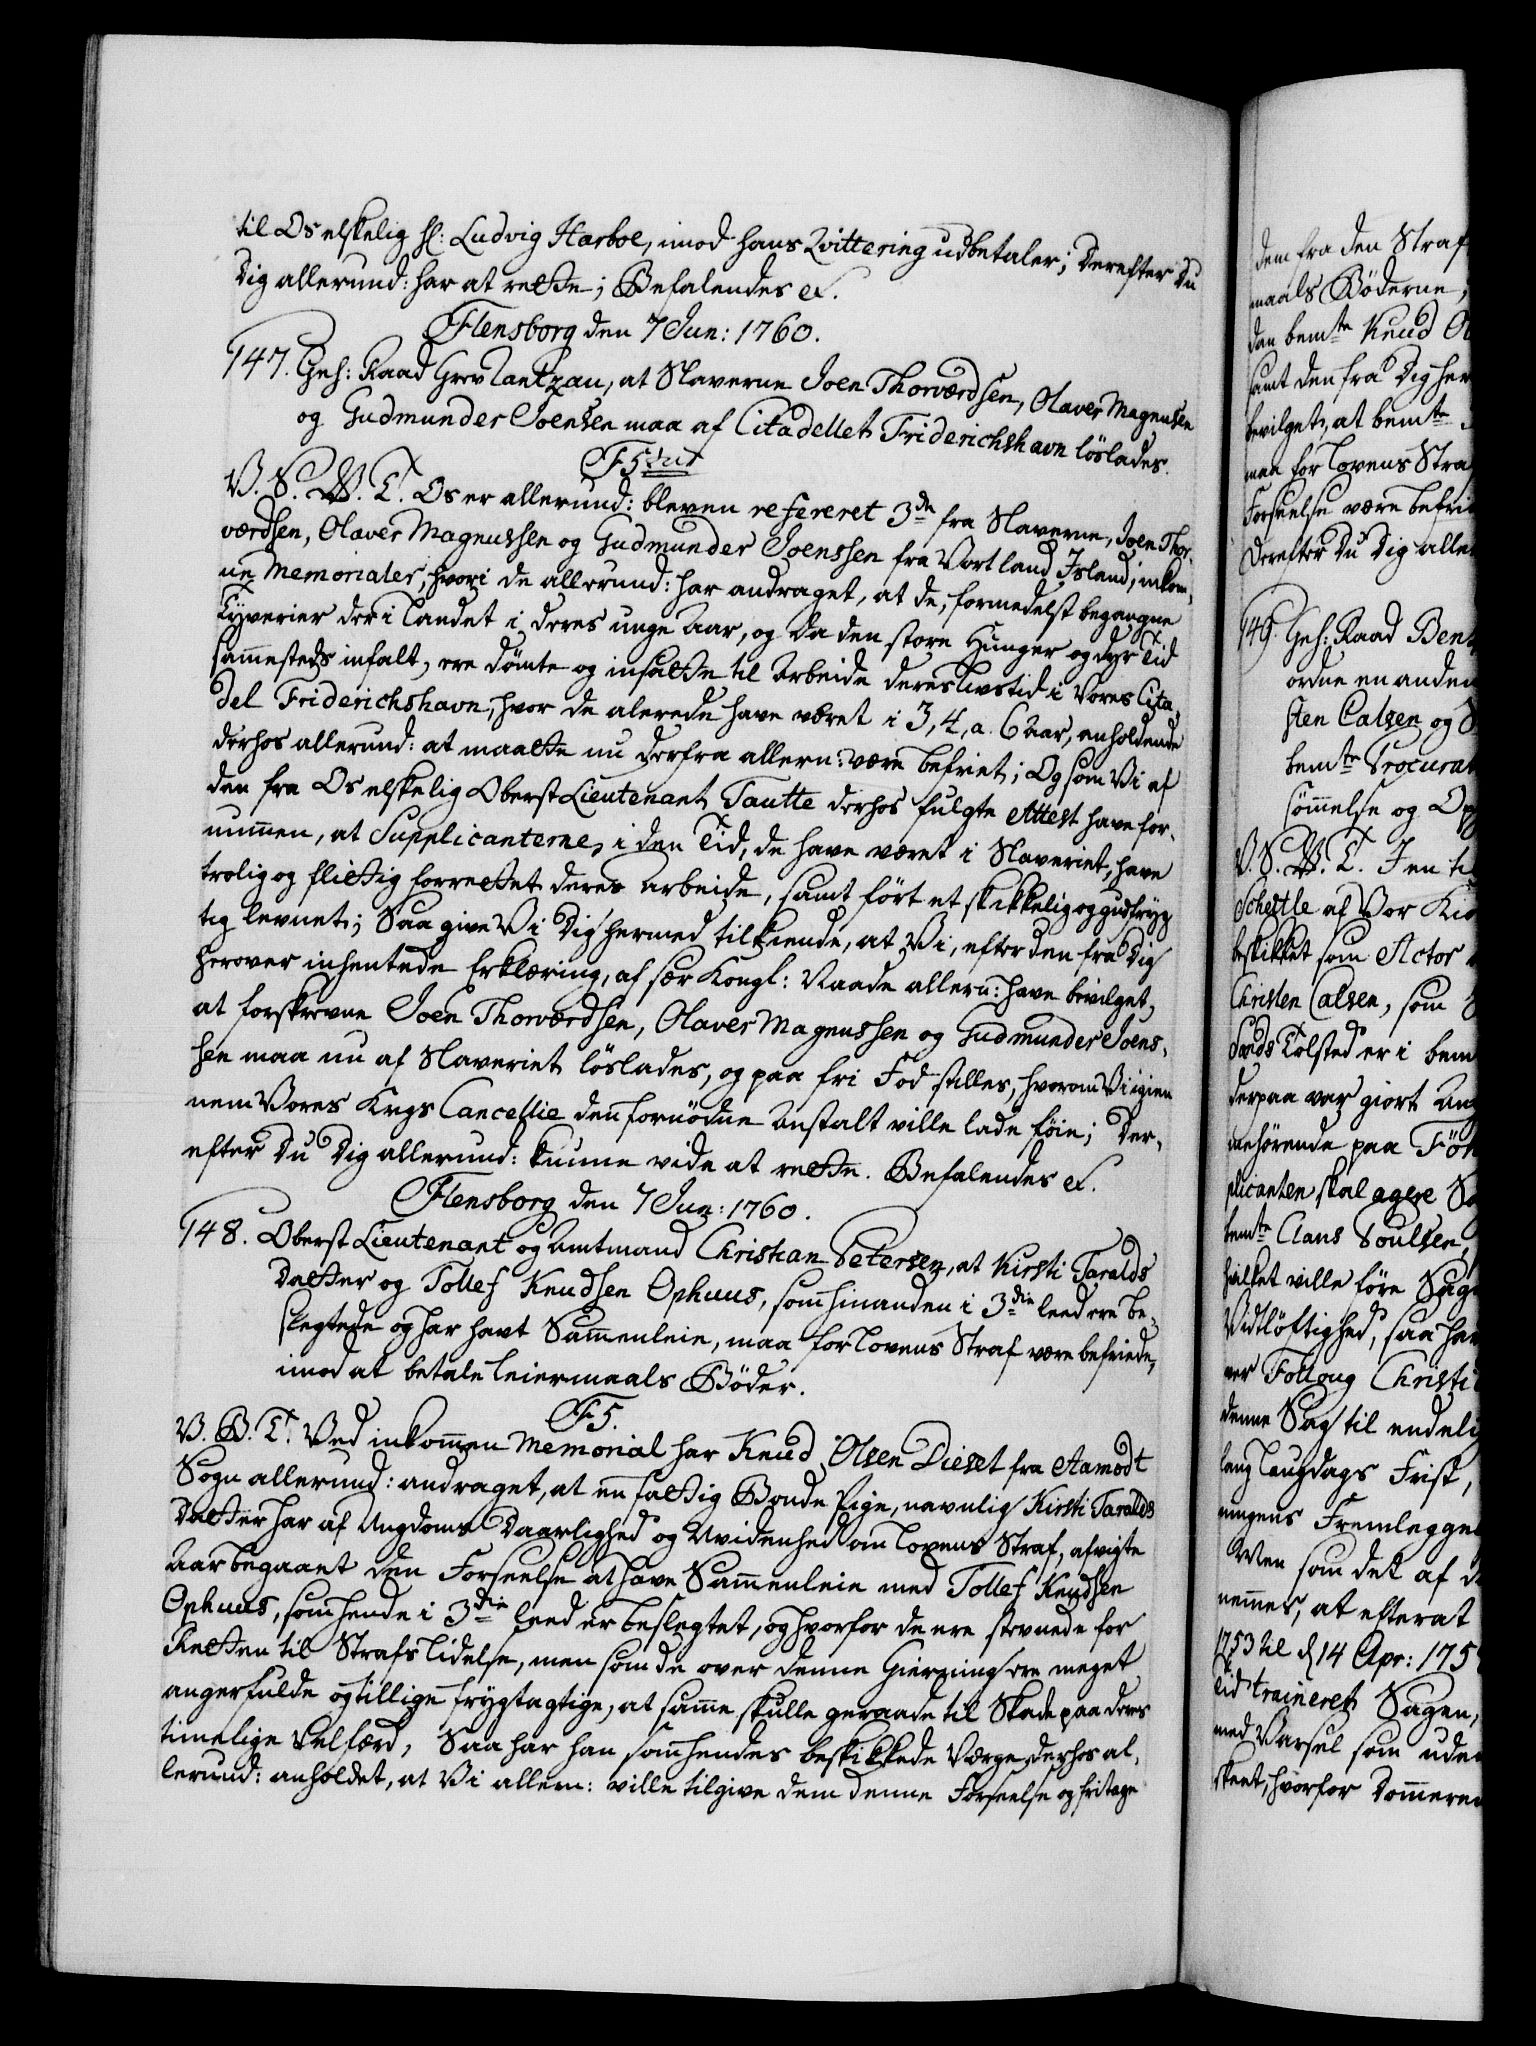 til Os elskelig H: Ludvig Harboe, imod hans Qvittering udbetaler; Derefter Du
Dig allerund: har at rette; Befalendes &.
Flensborg den 7 Jun: 1760.
147. Geh: Raad Grev Rantzau, at Slaverne Joen Thorværdsen, Olaver Magnusen
og Gudmunder Joensen maa af Citadellet Friderichshavn löslades.
F5tus
V. S. W. T. Os er allerund: bleven refereret 3de fra Slaverne, Joen Thor-
værdsen, Olaver Magnussen og Gudmunder Joenssen fra Vort land Island, inkom-
ne Memorialer, hvori de allerund: har andraget, at de, formedelst begangne
Tyverier der i Landet i deres unge Aar, og da den store Hunger og dyr Tid
sammesteds infalt, ere dömte og insatte til Arbeide deres livstid i Vores Cita-
del Friderichshavn, hvor de alerede have været i 3, 4, a. 6 Aar, anholdende
derhos allerund: at maatte nu derfra allern: være befriet; Og som Vi af
den fra Os elskelig Oberst Lieutenant Tautte derhos fulgte Attest have for-
nummen, at Supplicanterne, i den Tid, de have været i Slaveriet, have
trolig og flittig forrettet deres Arbeide, samt fört et skikkelig og gudfryg-
tig levnet; Saa give Vi Dig hermed tilkiende, at Vi, efter den fra Dig
herover inhentede Erklæring, af sær Kongl: Naade allern: have bevilget,
at forskrevne Joen Thorværdsen, Olaver Magnussen og Gudmunder Joens-
sen maa nu af Slaveriet löslades, og paa fri Fod stilles, hvorom Vi igien-
nem Vores Krigs Cancellie den fornödne Anstalt ville lade föie; Der-
efter Du Dig allerund: kunne vide at rette. Befalendes &.
Flensborg den 7 Jun: 1760.
148. Oberst Lieutenant og Amtmand Christian Petersen, at Kirsti Taralds
Datter og Tollef Knudsen Ophuus, som hinanden i 3die leed ere be-
slegtede og har havt Sammenleie, maa for Lovens Straf være befriede,
imod at betale Leiermaals Böder.
F5.
V. G. T. Ved inkommen Memorial har Knud Olsen Dieset fra Aamodt
Sogn allerund: andraget, at en fattig Bonde Pige, navnlig Kirsti Taralds
Datter har af Ungdoms Daarlighed og Uvidenhed om Lovens Straf, afvigte
Aar begaaet den Forseelse at have Sammenleie med Tollef Knudsen
Ophuus, som hende i 3die leed er beslegtet, og hvorfor de ere stevnede for
Retten til Strafs Lidelse, men som de over denne Gierning ere meget
angerfulde og tillige frygtagtige, at samme skulle geraade til Skade paa deres
timelige Velfærd, Saa har han som hendes beskikkede Værge derhos al-
lerund: anholdet, at Vi allern: ville tilgive dem denne Forseelse og fritage
dem fra den Straf
maals Böderne,
den bemte Knud Ol
samt den fra Dig her
bevilget, at bemte
maa for Lovens Stra
Forseelse være befri
Derefter Du Dig aller
149. Geh: Raad Bent
ordne en anden
sten Calsen og
bemte Procurat
sömmelse og Op
V. S. W. T. I en ti
Schettle af Vor
beskikket som Actor
Christen Calsen, som
Tolsted er i bem
derpaa var giort An
nehörende paa Föh
plicanten skal agere Sa
bemte Claus Poulsen
hvilket ville före Sag
Vidtlöftighed, saa har
ver Folloug Christi
denne Sag til endelig
lang Laugdags Frist,
ningens Fremleggel
Men som det af d
nemmes, at efterat
1753 til d 14 Apr: 175
Tid traineret Sagen,
med Varsel som uden
skeet, hvorfor Dommeren